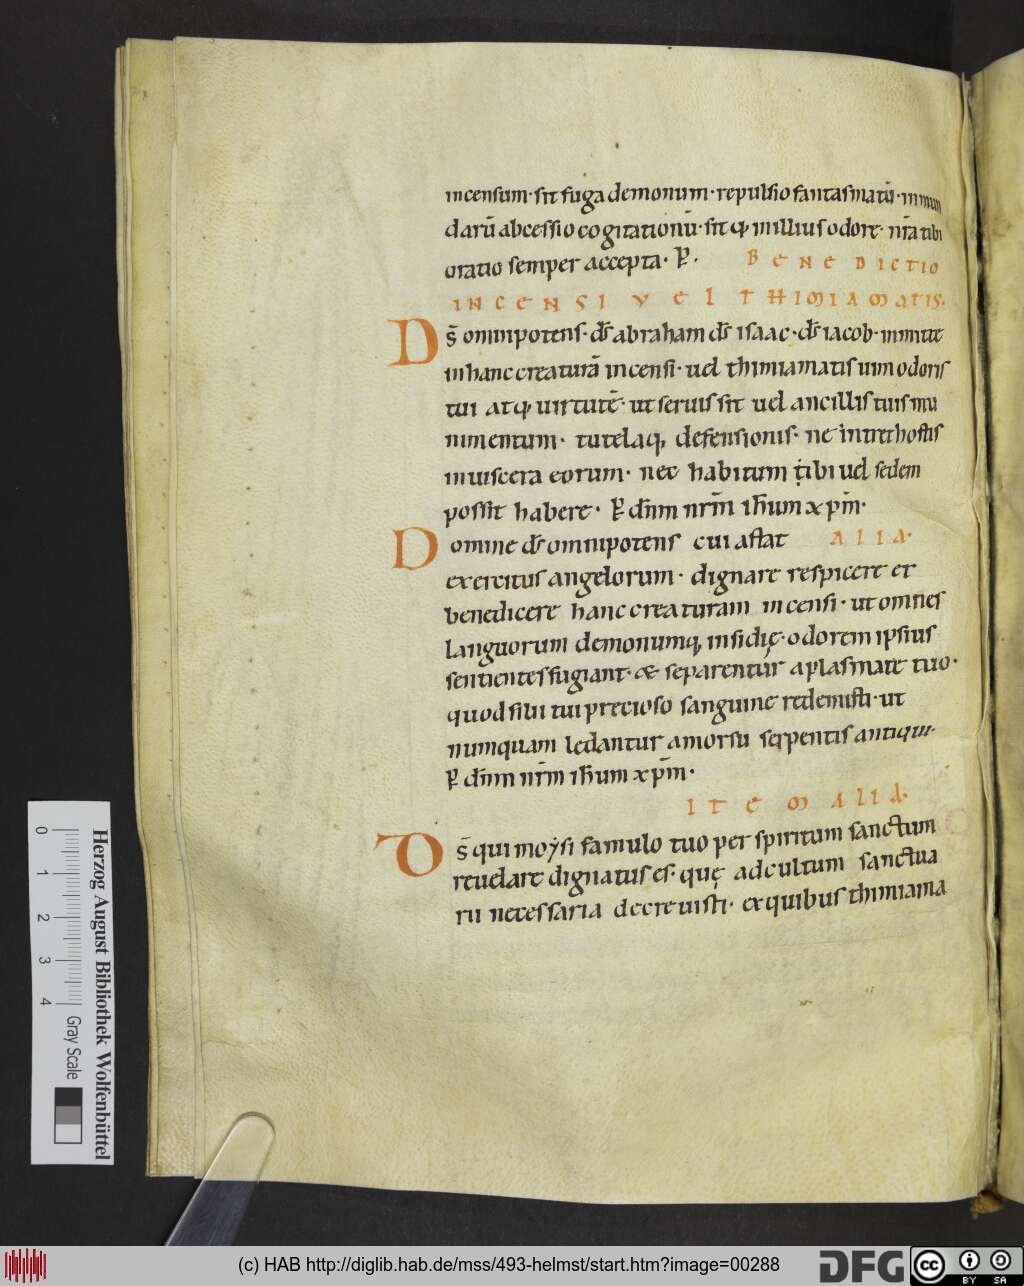 incensum· sit fuga demonum· repulsio fantasmatū· inmun
darū abcessio cogitationū· sit qꝫ illius odore· nr̄a tibi
oratio semper accepta· P̄.
BENEDICTIO
INCENSI VEL THIMIAMATIS.
Ds̄ omnipotens· ds̄ abraham ds̄ isaac· ds̄ iacob· inmitte
in hanc creaturā incensi· uel thimiamatis uim odoris
tui atqꝫ uirtutē· ut seruis sit uel ancillis tuis mu
nimentum· tutelaqꝫ defensionis· ne intret hostis
in uiscera eorum· nec habitum ibi uel sedem
possit habere· P̄ dn̄m nr̄m ih̄um xp̄m·
Domine ds̄ omnipotens cui astat
ALIA·
exercitus angelorum· dignare respicere et
benedicere hanc creaturam incensi· ut omnes
languorum demonumqꝫ insidię· odorem ipsius
sentientes fugiant· & separentur a plasmate tuo·
quod filii tui precioso sanguine redemisti· ut
numquam ledantur a morsu serpentis antiqui·
P̄ dn̄m nr̄m ih̄um xp̄m·
ITEM ALIA·
Ds̄ qui moẏsi famulo tuo per spiritum sanctum
reuelare dignatus es· quę ad cultum sanctua
rii necessaria decreuisti· ex quibus thimiama
0 1 2 3 4
Herzog August Bibliothek Wolfenbüttel
Gray Scale
(c) HAB http://diglib.hab.de/mss/493-helmst/start.htm?image=00288
DFG
cc BY SA